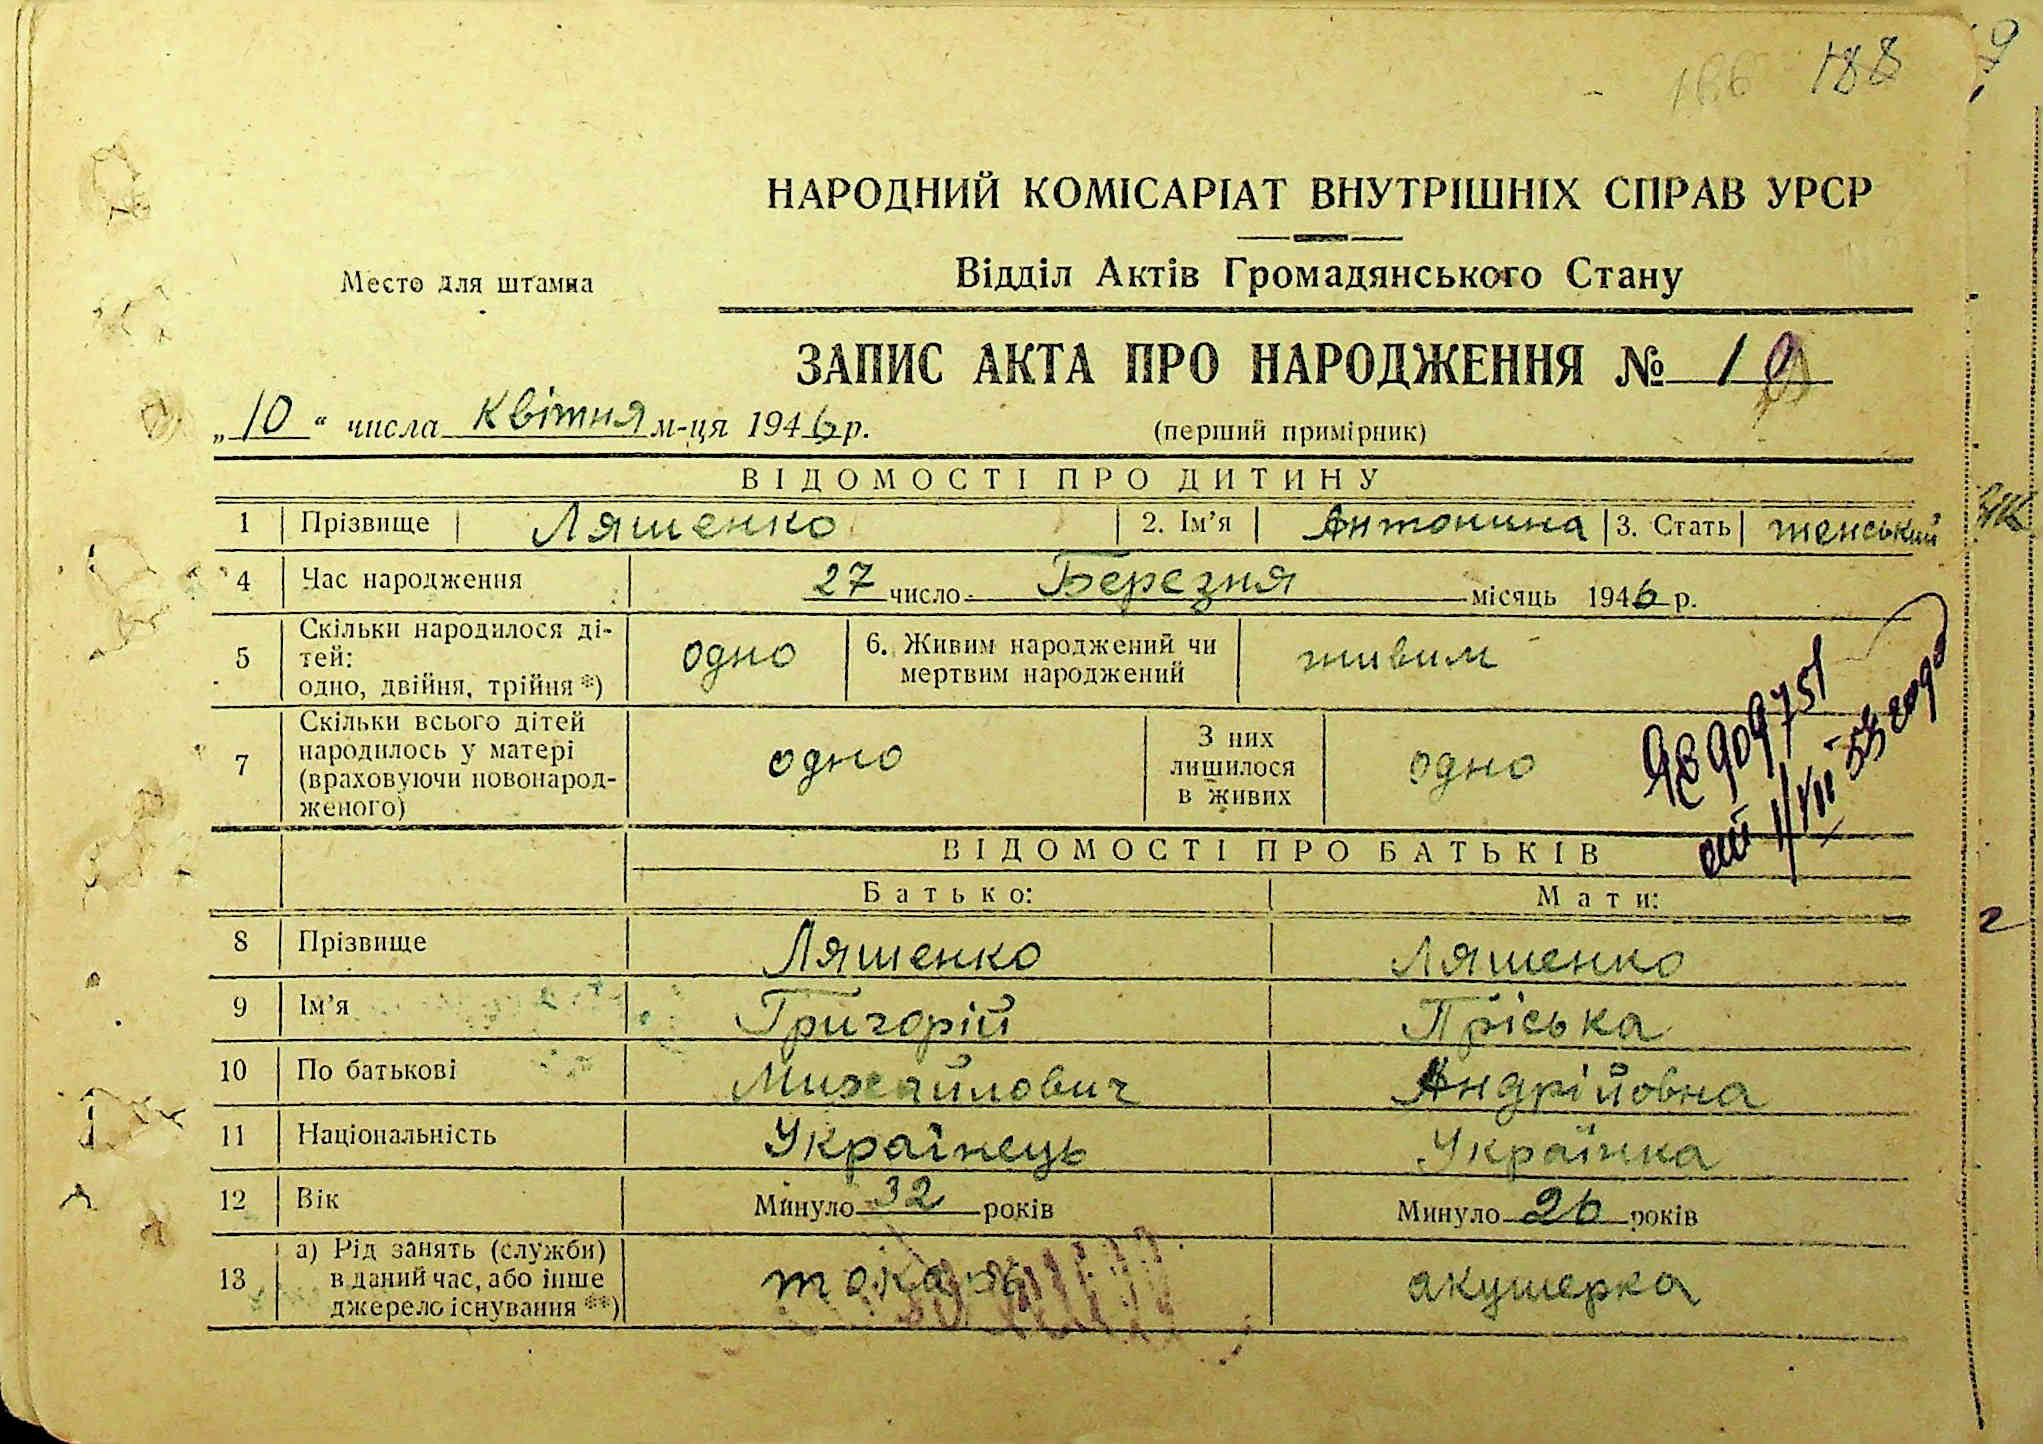 188
НАРОДНИЙ КОМІСАРІАТ ВНУТРІШНІХ СПРАВ УРСР
Место для штампа
Відділ Актів Громадянського Стану
ЗАПИС АКТА ПРО НАРОДЖЕННЯ № 19
„10“ числа квітня м-ця 1946 р.
(перший примірник)
ВІДОМОСТІ ПРО ДИТИНУ
1 Прізвище Ляшенко 2. Ім’я Антонина 3. Стать женський
4 Час народження 27 число Березня місяць 1946 р.
5 Скільки народилося ді-
тей:
одно, двійня, трійня *)
одно
6. Живим народжений чи
мертвим народжений
живим
7 Скільки всього дітей
народилось у матері
(враховуючи новонарод-
женого)
одно
З них
лишилося
в живих
одно
909751
от 1/VII-55 года
ВІДОМОСТІ ПРО БАТЬКІВ
Батько: Мати:
8 Прізвище Ляшенко Ляшенко
9 Ім’я Григорій Пріська
10 По батькові Михайлович Андрійовна
11 Національність Українець Українка
12 Вік Минуло 32 років Минуло 26 років
13 а) Рід занять (служби)
в даний час, або інше
джерело існування **)
токарь
акушерка